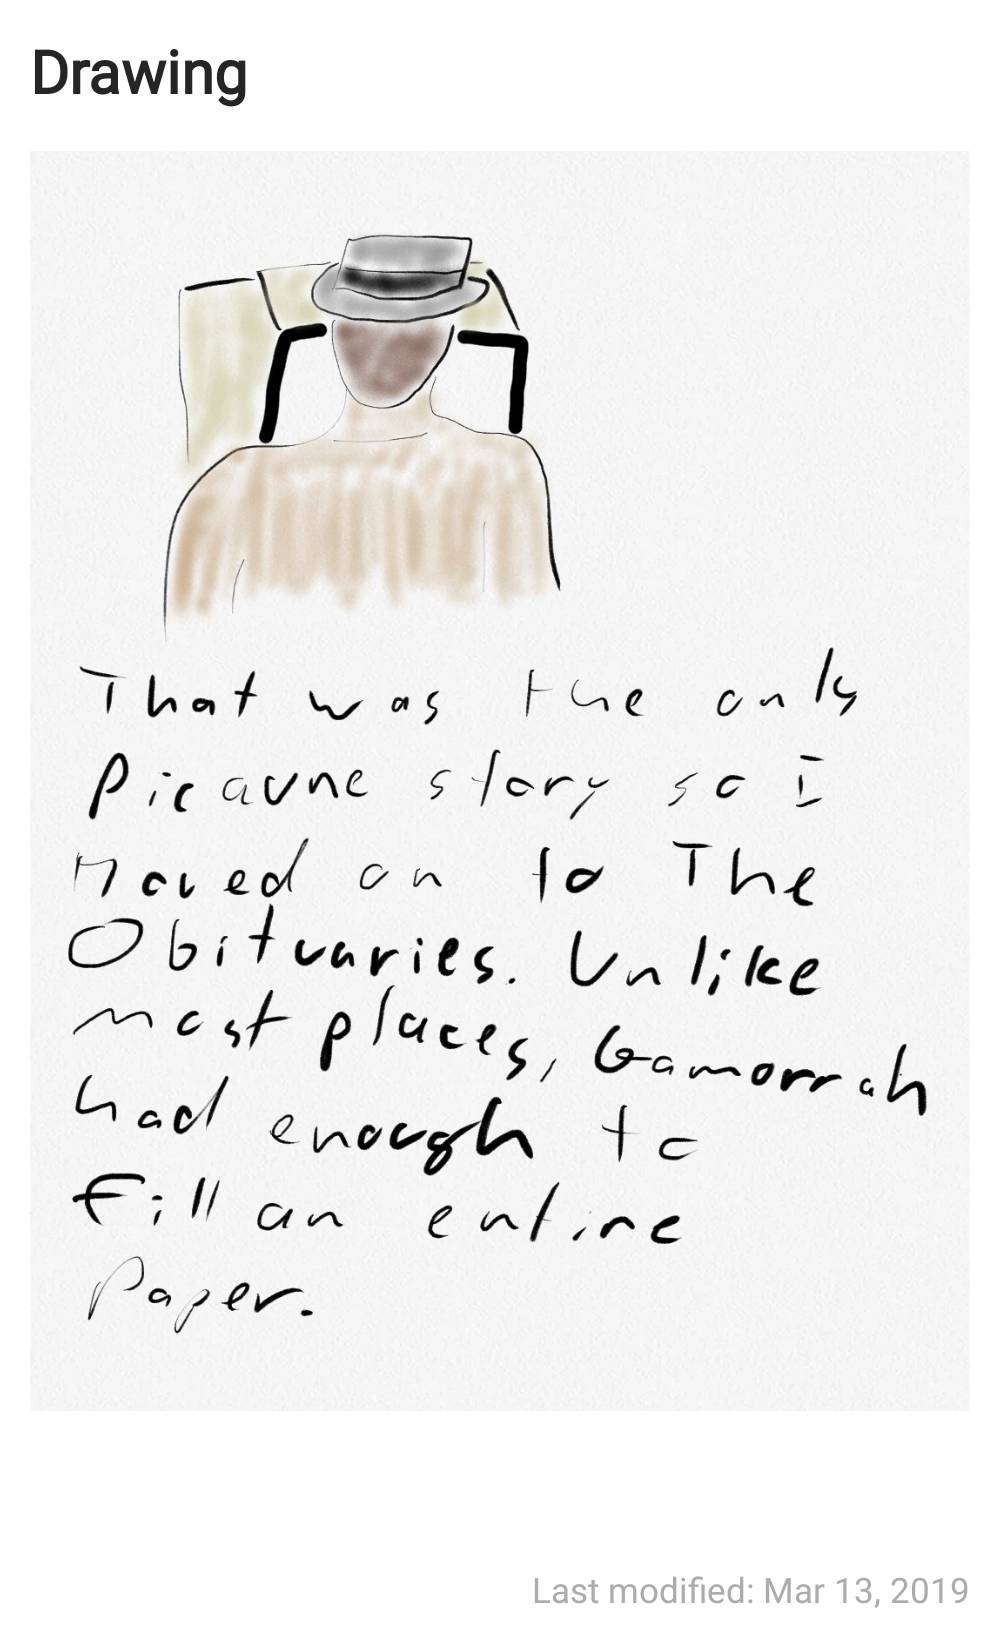 Drawing
That was the only
Picaune story so I
Moved on to The
Obituaries. Unlike
most places, Gamorrah
had enough to
fill an entire
Paper.
Last modified: Mar 13, 2019